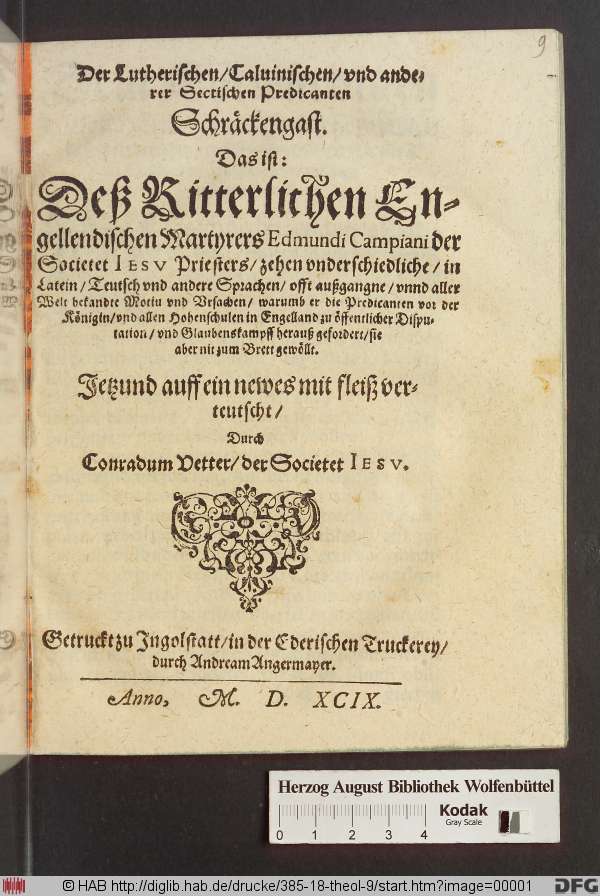 9
Der Lutherischen/Caluinischen/vnd ande-
rer Sectischen Predicanten
Schräckengast.
Das ist:
Deß Ritterlichen En-
gellendischen Martyrers Edmundi Campiani der
Societet IESV Priesters/zehen vnderschiedliche/in
Latein/Teutsch vnd andere Sprachen/offt außgangne/vnnd aller
Welt bekandte Motiu vnd Vrsachen/warumb er die Predicanten vor der
Königin/vnd allen Hohenschulen in Engelland zu öffentlicher Dispu-
tation/vnd Glaubenskampff herauß gefordert/sie
aber nit zum Brett gewöllt.
Jetzund auff ein newes mit fleiß ver-
teutscht/
Durch
Conradum Vetter/der Societet IESV.
Getruckt zu Jngolstatt/in der Ederischen Truckerey/
durch Andream Angermayer.
Anno, M. D. XCIX.
Herzog August Bibliothek Wolfenbüttel
Kodak
Gray Scale
0 1 2 3 4
© HAB http://diglib.hab.de/drucke/385-18-theol-9/start.htm?image=00001
DFG